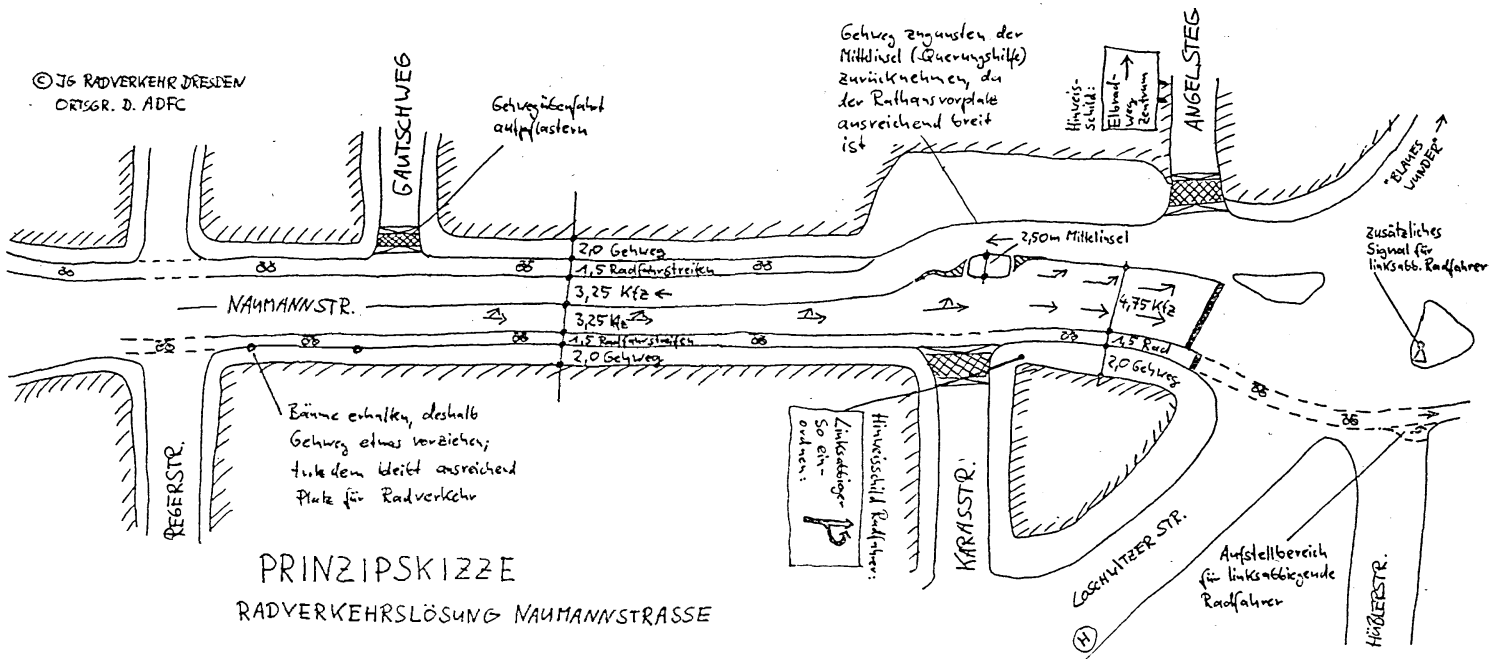 © IG RADVERKEHR DRESDEN
ORTSGR. D. ADFC
GAUTSCHWEG
Gehwegüberfahrt
aufpflastern
Gehweg zugunsten der
Mittelinsel (Querungshilfe)
zurücknehmen, da
der Rathausvorplatz
ausreichend breit
ist
Hinweis-
schild:
Elbrad-
weg
Zentrum
ANGELSTEG
"BLAUES
WUNDER"
zusätzliches
Signal für
linksabb. Radfahrer
2,50m Mittelinsel
2,0 Gehweg
1,5 Radfahrstreifen
3,25 Kfz
NAUMANNSTR.
3,25 Kfz
1,5 Radfahrstreifen
2,0 Gehweg
4,75 Kfz
1,5 Rad
2,0 Gehweg
Bäume erhalten, deshalb
Gehweg etwas verziehen;
trotzdem bleibt ausreichend
Platz für Radverkehr
REGERSTR.
Hinweisschild Radfahrer:
Linksabbieger
so ein-
ordnen:
KARASSTR.
LOSCHWITZER STR.
H
Aufstellbereich
für linksabbiegende
Radfahrer
HÜBLERSTR.
PRINZIPSKIZZE
RADVERKEHRSLÖSUNG NAUMANNSTRASSE